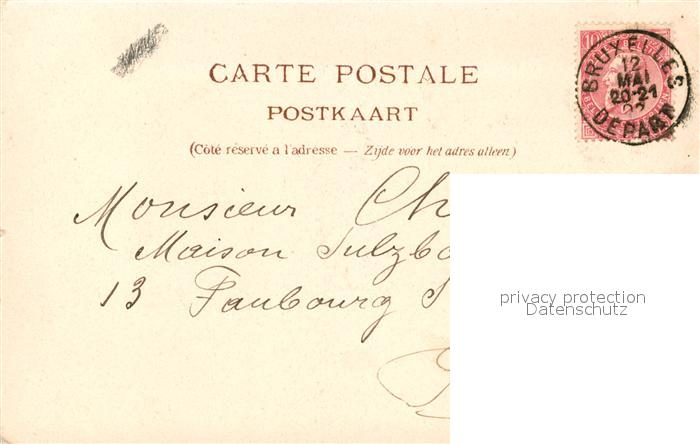 CARTE POSTALE
POSTKAART
(Côté réservé a l'adresse — Zijde voor het adres alleen.)
10
BRUXELLES
12
MAI
20-21
DEPART
Monsieur Ch
Maison Sulzb
13 Faubourg
privacy protection
Datenschutz